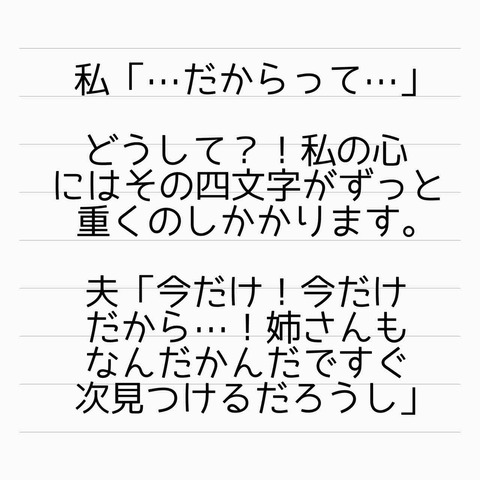 私「…だからって…」
どうして？！私の心
にはその四文字がずっと
重くのしかかります。
夫「今だけ！今だけ
だから…！姉さんも
なんだかんだですぐ
次見つけるだろうし」